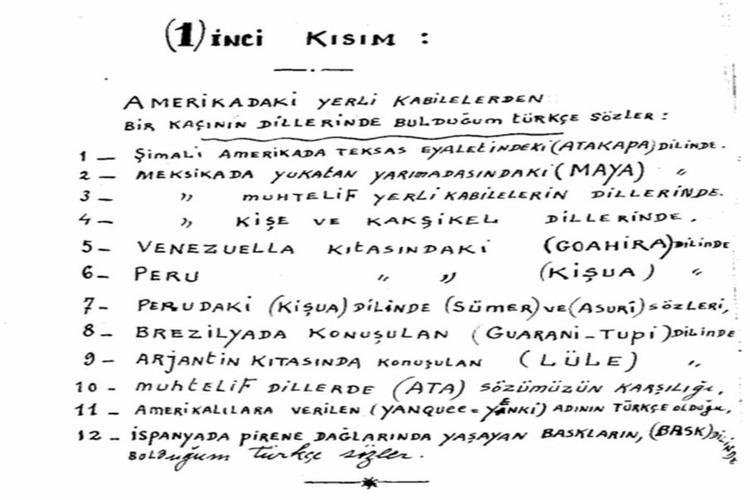 (1) İNCİ KISIM :
AMERİKADAKİ YERLİ KABİLELERDEN
BİR KAÇININ DİLLERİNDE BULDUĞUM TÜRKÇE SÖZLER :
1 — ŞİMALİ AMERİKADA TEKSAS EYALETİNDEKİ (ATAKAPA) DİLİNDE.
2 — MEKSİKADA YUKATAN YARIMADASINDAKİ (MAYA) "
3 — " MUHTELİF YERLİ KABİLELERİN DİLLERİNDE.
4 — " KİŞE VE KAKŞİKEL DİLLERİNDE.
5 — VENEZUELLA KITASINDAKİ (GOAHİRA) DİLİNDE
6 — PERU " " (KİŞUA) "
7 — PERUDAKİ (KİŞUA) DİLİNDE (SÜMER) VE (ASURİ) SÖZLERİ,
8 — BREZİLYADA KONUŞULAN (GUARANİ-TUPİ) DİLİNDE
9 — ARJANTİN KITASINDA KONUŞULAN (LÜLE) "
10 — MUHTELİF DİLLERDE (ATA) SÖZÜMÜZÜN KARŞILIĞI,
11 — AMERİKALILARA VERİLEN (YANQUEE = YENKİ) ADININ TÜRKÇE OLDUĞU,
12 — İSPANYADA PİRENE DAĞLARINDA YAŞAYAN BASKLARIN, (BASK) DİLİNDE
BOLDUĞUM TÜRKÇE SÖZLER.